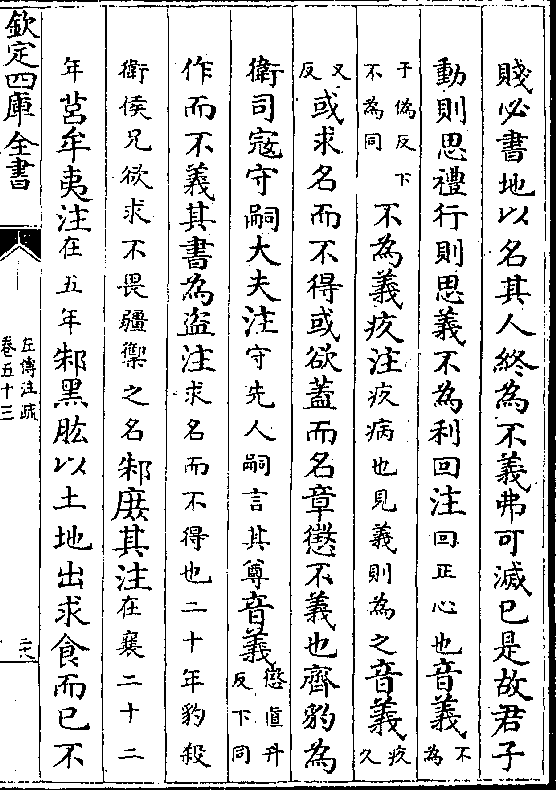 賤必書地以名其人終為不義弗可滅已是故君子
動則思禮行則思義不為利回注回正心也音義不為
于偽反下不為同不為義疚注疚病也見義則為之音義疚久
又反或求名而不得或欲蓋而名章懲不義也齊豹為
衛司寇守嗣大夫注守先人嗣言其尊音義懲直升反下同
作而不義其書為盗注求名而不得也二十年豹殺
衛侯兄欲求不畏彊禦之名邾庶其注在襄二十二
年莒牟夷注在五年邾黑肱以土地出求食而已不
欽定四庫全書
左傳注疏
卷五十三